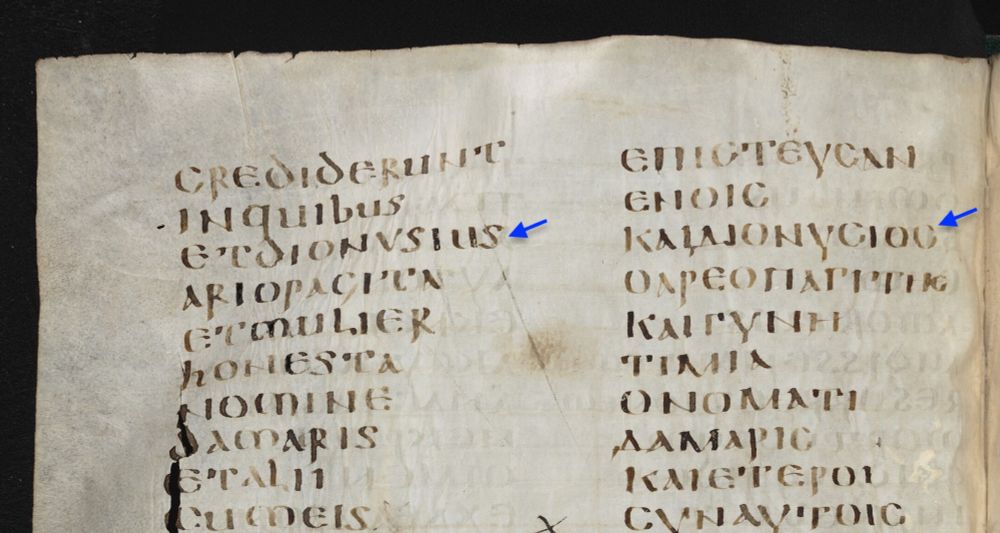 CREDIDERUNT
INQUIBUS
ETDIONYSIUS
ARIOPAGITA
ETMULIER
HONESTA
NOMINE
DAMARIS
ETALII
CUMEIS
ΕΠΙϹΤΕΥϹΑΝ
ΕΝΟΙϹ
ΚΑΙΔΙΟΝΥϹΙΟϹ
ΟΑΡΕΟΠΑΓΙΤΗϹ
ΚΑΙΓΥΝΗ
ΤΙΜΙΑ
ΟΝΟΜΑΤΙ
ΔΑΜΑΡΙϹ
ΚΑΙΕΤΕΡΟΙ
ϹΥΝΑΥΤΟΙϹ